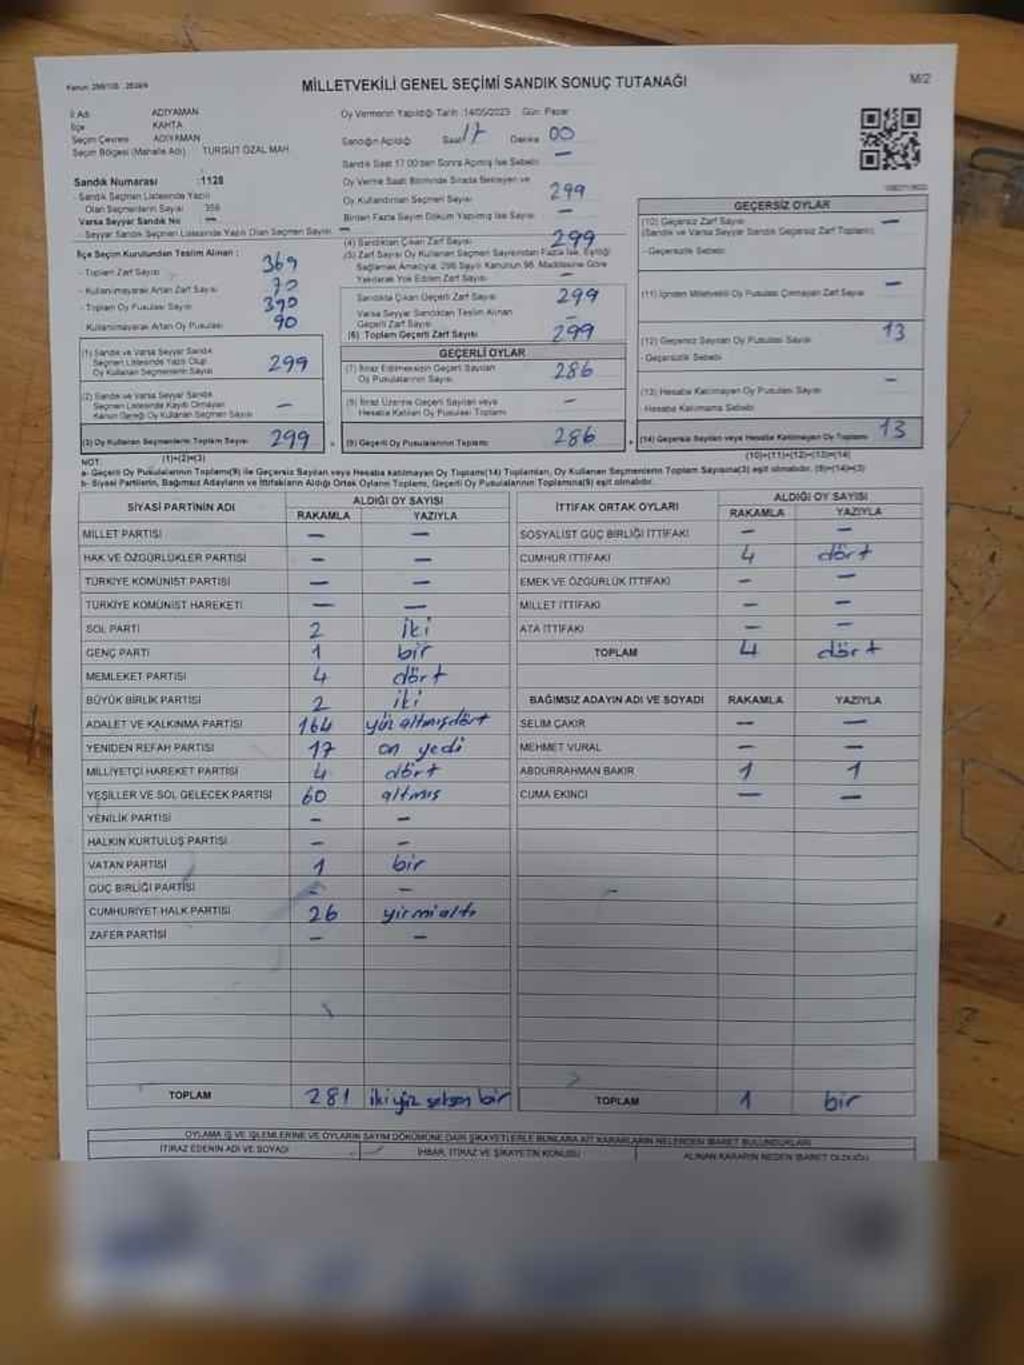 MİLLETVEKİLİ GENEL SEÇİMİ SANDIK SONUÇ TUTANAĞI
M/2
İl Adı ADIYAMAN
İlçe KAHTA
Seçim Çevresi ADIYAMAN
Seçim Bölgesi (Mahalle Adı) TURGUT ÖZAL MAH.
Sandık Numarası :1128
- Sandık Seçmen Listesinde Yazılı
Olan Seçmenlerin Sayısı 356
Varsa Seyyar Sandık No —
- Seyyar Sandık Seçmen Listesinde Yazılı Olan Seçmen Sayısı —
Oy Vermenin Yapıldığı Tarih :14/05/2023 Gün: Pazar
Sandığın Açıldığı Saat 17 Dakika 00
Sandık Saat 17.00'den Sonra Açılmış İse Sebebi —
Oy Verme Saati Bitiminde Sırada Bekleyen ve
Oy Kullandırılan Seçmen Sayısı 299
Birden Fazla Sayım Döküm Yapılmış İse Sayısı —
İlçe Seçim Kurulundan Teslim Alınan :
- Toplam Zarf Sayısı 369
- Kullanılmayarak Artan Zarf Sayısı 70
- Toplam Oy Pusulası Sayısı 390
Kullanılmayarak Artan Oy Pusulası 90
(1) Sandık ve Varsa Seyyar Sandık
Seçmen Listesinde Yazılı Olup
Oy Kullanan Seçmenlerin Sayısı 299
(2) Sandık ve Varsa Seyyar Sandık
Seçmen Listesinde Kayıtlı Olmayan
Kanun Gereği Oy Kullanan Seçmen Sayısı —
(3) Oy Kullanan Seçmenlerin Toplam Sayısı 299
(1)+(2)=(3)
(4) Sandıktan Çıkan Zarf Sayısı 299
(5) Zarf Sayısı Oy Kullanan Seçmen Sayısından Fazla İse, Eşitliği
Sağlamak Amacıyla, 298 Sayılı Kanunun 98. Maddesine Göre
Yakılarak Yok Edilen Zarf Sayısı —
Sandıkta Çıkan Geçerli Zarf Sayısı 299
Varsa Seyyar Sandıktan Teslim Alınan
Geçerli Zarf Sayısı —
(6) Toplam Geçerli Zarf Sayısı 299
GEÇERLİ OYLAR
(7) İtiraz Edilmeksizin Geçerli Sayılan
Oy Pusulalarının Sayısı 286
(8) İtiraz Üzerine Geçerli Sayılan veya
Hesaba Katılan Oy Pusulası Toplamı —
(9) Geçerli Oy Pusulalarının Toplamı 286
GEÇERSİZ OYLAR
(10) Geçersiz Zarf Sayısı —
(Sandık ve Varsa Seyyar Sandık Geçersiz Zarf Toplamı)
- Geçersizlik Sebebi
(11) İçinden Milletvekili Oy Pusulası Çıkmayan Zarf Sayısı —
(12) Geçersiz Sayılan Oy Pusulası Sayısı 13
- Geçersizlik Sebebi
(13) Hesaba Katılmayan Oy Pusulası Sayısı —
Hesaba Katılmama Sebebi
(14) Geçersiz Sayılan veya Hesaba Katılmayan Oy Toplamı 13
(10)+(11)+(12)+(13)=(14)
NOT:
a- Geçerli Oy Pusulalarının Toplamı(9) ile Geçersiz Sayılan veya Hesaba katılmayan Oy Toplamı(14) Toplamları, Oy Kullanan Seçmenlerin Toplam Sayısına(3) eşit olmalıdır. (9)+(14)=(3)
b- Siyasi Partilerin, Bağımsız Adayların ve İttifakların Aldığı Ortak Oyların Toplamı, Geçerli Oy Pusulalarının Toplamına(9) eşit olmalıdır.
SİYASİ PARTİNİN ADI ALDIĞI OY SAYISI
RAKAMLA YAZIYLA
MİLLET PARTİSİ — —
HAK VE ÖZGÜRLÜKLER PARTİSİ — —
TÜRKİYE KOMÜNİST PARTİSİ — —
TÜRKİYE KOMÜNİST HAREKETİ — —
SOL PARTİ 2 iki
GENÇ PARTİ 1 bir
MEMLEKET PARTİSİ 4 dört
BÜYÜK BİRLİK PARTİSİ 2 iki
ADALET VE KALKINMA PARTİSİ 164 yüz altmışdört
YENİDEN REFAH PARTİSİ 17 on yedi
MİLLİYETÇİ HAREKET PARTİSİ 4 dört
YEŞİLLER VE SOL GELECEK PARTİSİ 60 altmış
YENİLİK PARTİSİ — —
HALKIN KURTULUŞ PARTİSİ — —
VATAN PARTİSİ 1 bir
GÜÇ BİRLİĞİ PARTİSİ — —
CUMHURİYET HALK PARTİSİ 26 yirmialtı
ZAFER PARTİSİ — —
TOPLAM 281 ikiyüz seksen bir
İTTİFAK ORTAK OYLARI ALDIĞI OY SAYISI
RAKAMLA YAZIYLA
SOSYALİST GÜÇ BİRLİĞİ İTTİFAKI — —
CUMHUR İTTİFAKI 4 dört
EMEK VE ÖZGÜRLÜK İTTİFAKI — —
MİLLET İTTİFAKI — —
ATA İTTİFAKI — —
TOPLAM 4 dört
BAĞIMSIZ ADAYIN ADI VE SOYADI RAKAMLA YAZIYLA
SELİM ÇAKIR — —
MEHMET VURAL — —
ABDURRAHMAN BAKIR 1 1
CUMA EKİNCİ — —
TOPLAM 1 bir
OYLAMA İŞ VE İŞLEMLERİNE VE OYLARIN SAYIM DÖKÜMÜNE DAİR ŞİKAYETLERLE BUNLARA AİT KARARLARIN NELERDEN İBARET BULUNDUKLARI
İTİRAZ EDENİN ADI VE SOYADI İHBAR, İTİRAZ VE ŞİKAYETİN KONUSU ALINAN KARARIN NEDEN İBARET OLDUĞU